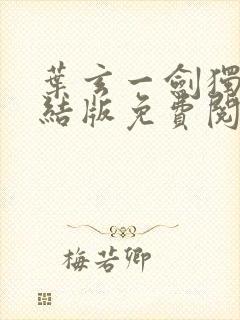 葉玄一劍獨
結版免費閱
梅若卿